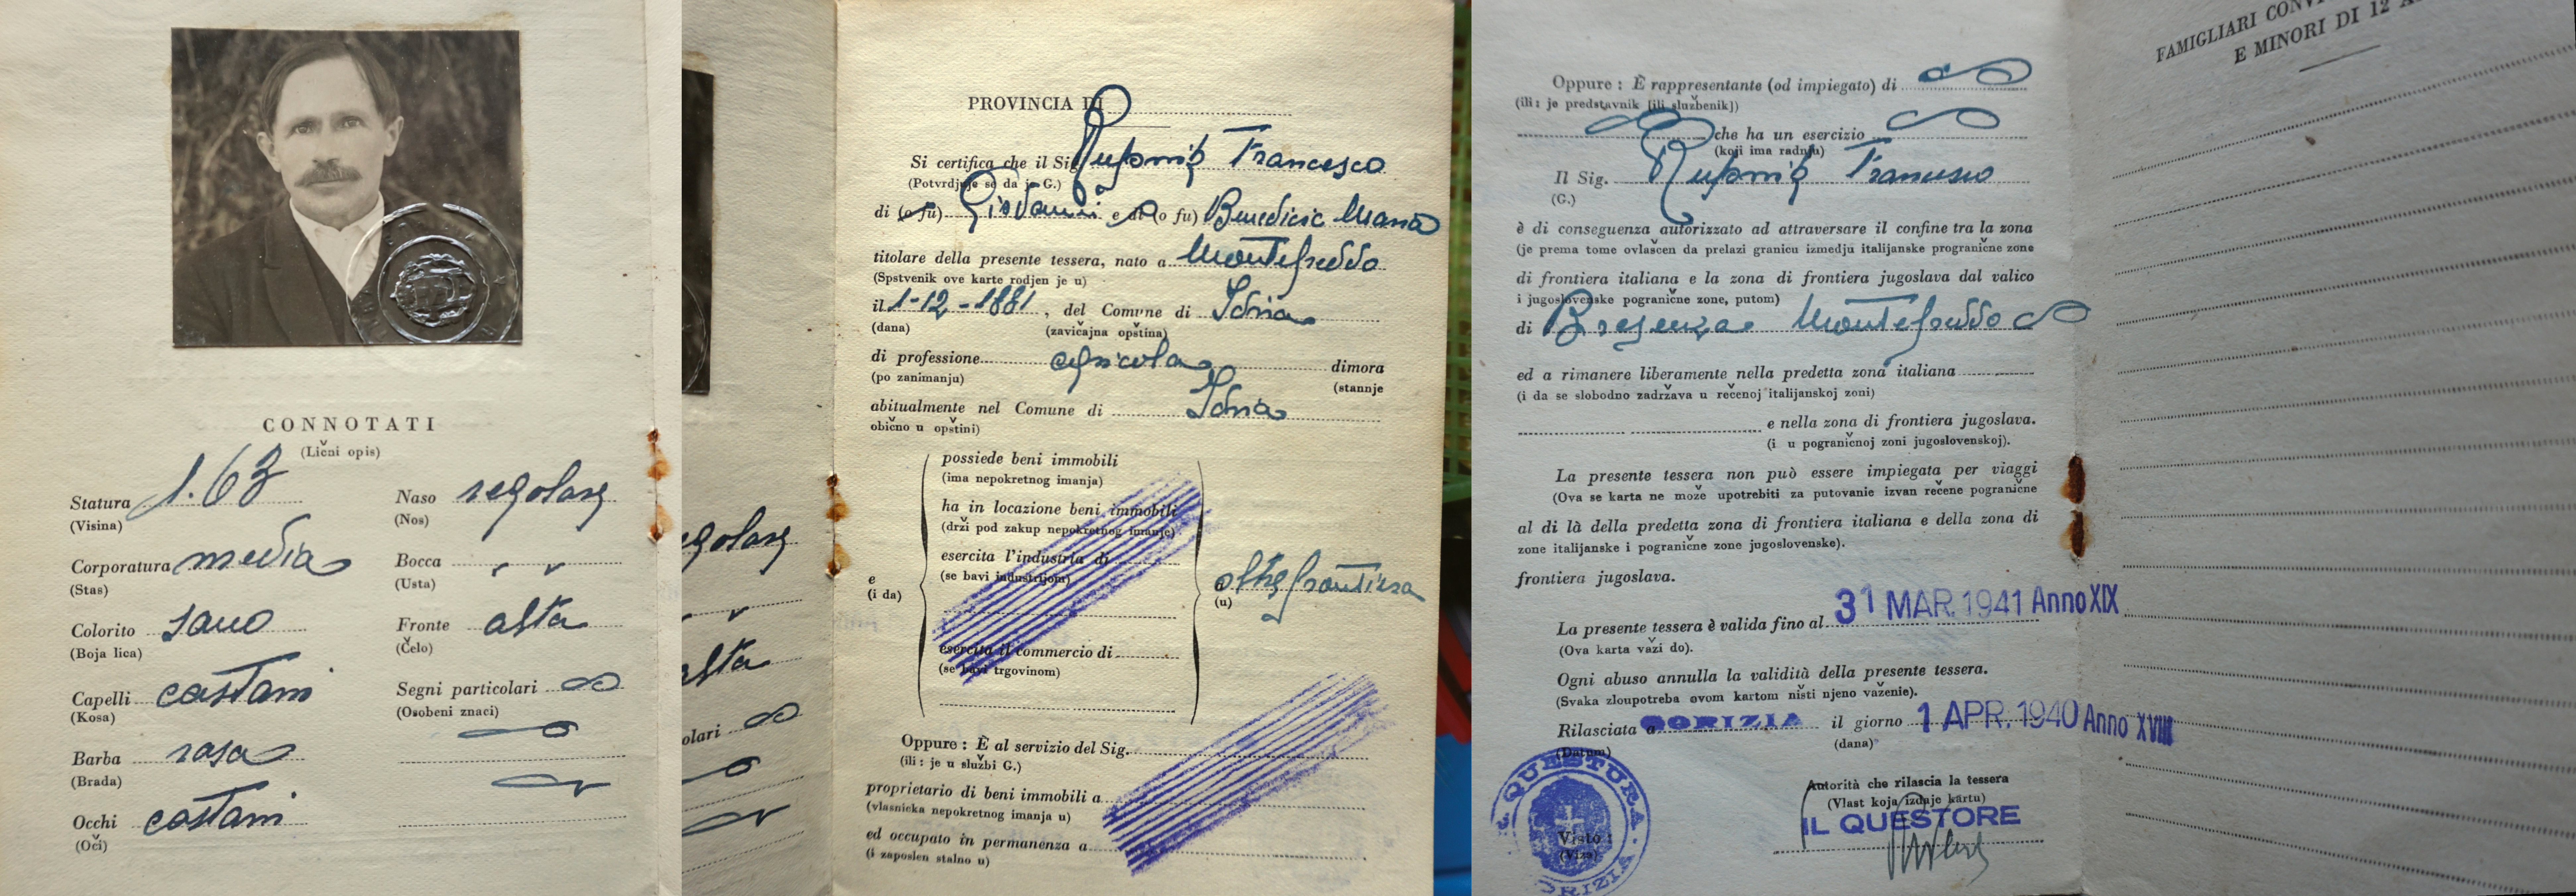 CONNOTATI
(Lični opis)
Statura 1.63
(Visina)
Corporatura media
(Stas)
Colorito sano
(Boja lica)
Capelli castani
(Kosa)
Barba rasa
(Brada)
Occhi castani
(Oči)
Naso regolare
(Nos)
Bocca " "
(Usta)
Fronte alta
(Čelo)
Segni particolari
(Osobeni znaci)
egolare
alta
olari
PROVINCIA DI
Si certifica che il Sig. Francesco
(Potvrdjuje se da je G.)
di (o fu) Giovanni e di (o fu) Benedicic Maria
titolare della presente tessera, nato a Montefreddo
(Spstvenik ove karte rodjen je u)
il 1-12-1881, del Comune di Idria
(dana) (zavičajna opština)
di professione agricola dimora
(po zanimanju) (stannje
abitualmente nel Comune di Idria
obično u opštini)
possiede beni immobili
(ima nepokretnog imanja)
ha in locazione beni immobili
(drži pod zakup nepokretnog imanje)
esercita l'industria di
(se bavi industrijom)
e
(i da)
oltre frontiera
(u)
esercita il commercio di
(se bavi trgovinom)
Oppure : È al servizio del Sig.
(ili : je u službi G.)
proprietario di beni immobili a
(vlasnicka nepokretnog imanja u)
ed occupato in permanenza a
(i zaposlen stalno u)
Oppure : È rappresentante (od impiegato) di
(ili : je predstavnik [ili službenik])
che ha un esercizio
(koji ima radnju)
Il Sig. Francesco
(G.)
è di conseguenza autorizzato ad attraversare il confine tra la zona
(je prema tome ovlašcen da prelazi granicu izmedju italijanske progranične zone
di frontiera italiana e la zona di frontiera jugoslava dal valico
i jugoslovenske pogranične zone, putom)
di Bresenza Montefreddo
ed a rimanere liberamente nella predetta zona italiana
(i da se slobodno zadržava u rečenoj italijanskoj zoni)
e nella zona di frontiera jugoslava.
(i u pograničnoj zoni jugoslovenskoj).
La presente tessera non può essere impiegata per viaggi
(Ova se karta ne može upotrebiti za putovanje izvan rečene pogranične
al di là della predetta zona di frontiera italiana e della zona di
zone italijanske i pogranične zone jugoslovenske).
frontiera jugoslava.
La presente tessera è valida fino al 31 MAR. 1941 Anno XIX
(Ova karta važi do).
Ogni abuso annulla la validità della presente tessera.
(Svaka zloupotreba ovom kartom ništi njeno važenie).
Rilasciata a GORIZIA il giorno 1 APR. 1940 Anno XVIII
(Datum) (dana)
Autorità che rilascia la tessera
(Vlast koja izdaje kartu)
IL QUESTORE
QUESTURA
Visto :
(Viza)
FAMIGLIARI
E MINORI DI 12